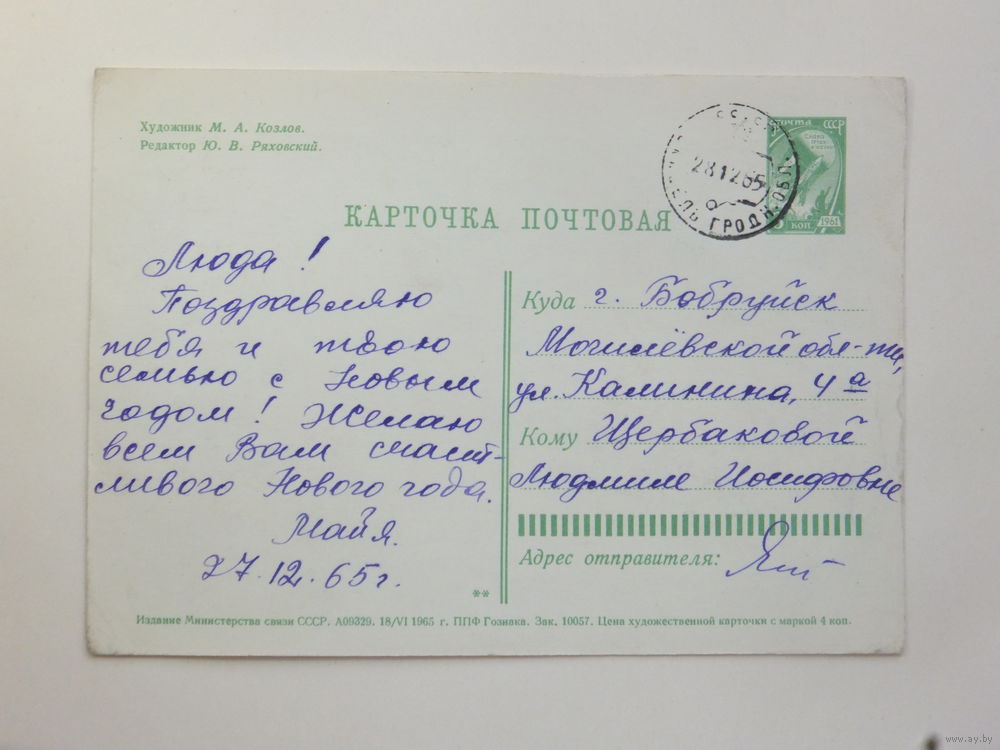 Художник М. А. Козлов.
Редактор Ю. В. Ряховский.
почта СССР
28 12 65
ГРОДН. ОБЛ.
коп. 1961
КАРТОЧКА ПОЧТОВАЯ
Люда!
Поздравляю
тебя и твою
семью с Новым
годом! Желаю
всем Вам счаст-
ливого Нового года.
Майя.
27.12.65г.
**
Куда г. Бобруйск
Могилёвской обл-ти,
ул. Калинина, 4а
Кому Щербаковой
Людмиле Иосифовне
Адрес отправителя:
Издание Министерства связи СССР. А09329. 18/VI 1965 г. ППФ Гознака. Зак. 10057. Цена художественной карточки с маркой 4 коп.
www.ay.by